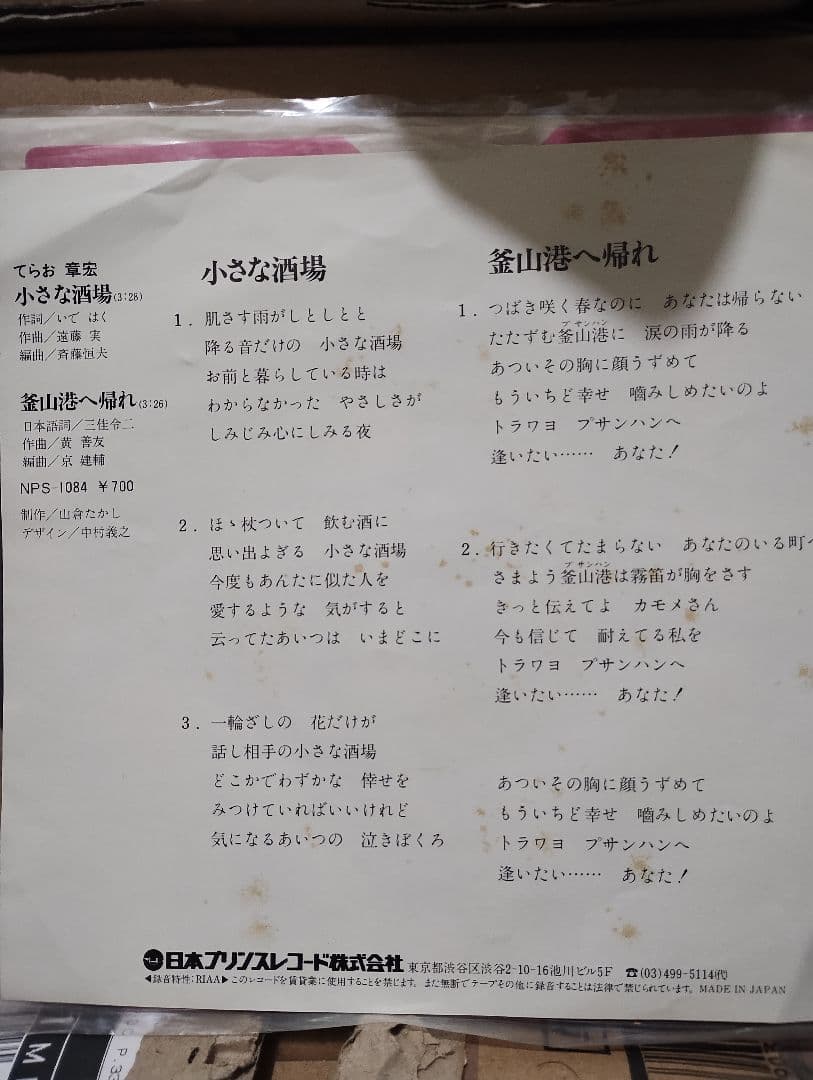 てらお 章宏
小さな酒場(3:28)
作詞/いで はく
作曲/遠藤 実
編曲/斉藤恒夫
釜山港へ帰れ(3:26)
日本語詞/三佳令二
作曲/黄 善友
編曲/京 建輔
NPS-1084 ¥700
制作/山倉たかし
デザイン/中村義之
小さな酒場
1. 肌さす雨がしとしとと
降る音だけの 小さな酒場
お前と暮らしている時は
わからなかった やさしさが
しみじみ心にしみる夜
2. ほゝ杖ついて 飲む酒に
思い出よぎる 小さな酒場
今度もあんたに似た人を
愛するような 気がすると
云ってたあいつは いまどこに
3. 一輪ざしの 花だけが
話し相手の小さな酒場
どこかでわずかな 倖せを
みつけていればいいけれど
気になるあいつの 泣きぼくろ
釜山港へ帰れ
1. つばき咲く春なのに あなたは帰らない
プサンハン
たたずむ釜山港に 涙の雨が降る
あついその胸に顔うずめて
もういちど幸せ 嚙みしめたいのよ
トラワヨ プサンハンへ
逢いたい…… あなた!
2. 行きたくてたまらない あなたのいる町へ
プサンハン
さまよう釜山港は霧笛が胸をさす
きっと伝えてよ カモメさん
今も信じて 耐えてる私を
トラワヨ プサンハンへ
逢いたい…… あなた!
あついその胸に顔うずめて
もういちど幸せ 嚙みしめたいのよ
トラワヨ プサンハンへ
逢いたい…… あなた!
日本プリンスレコード株式会社 東京都渋谷区渋谷2-10-16池川ビル5F ☎(03)499-5114代
◀録音特性:RIAA▶このレコードを賃貸業に使用することを禁じます。また無断でテープその他に録音することは法律で禁じられています。 MADE IN JAPAN